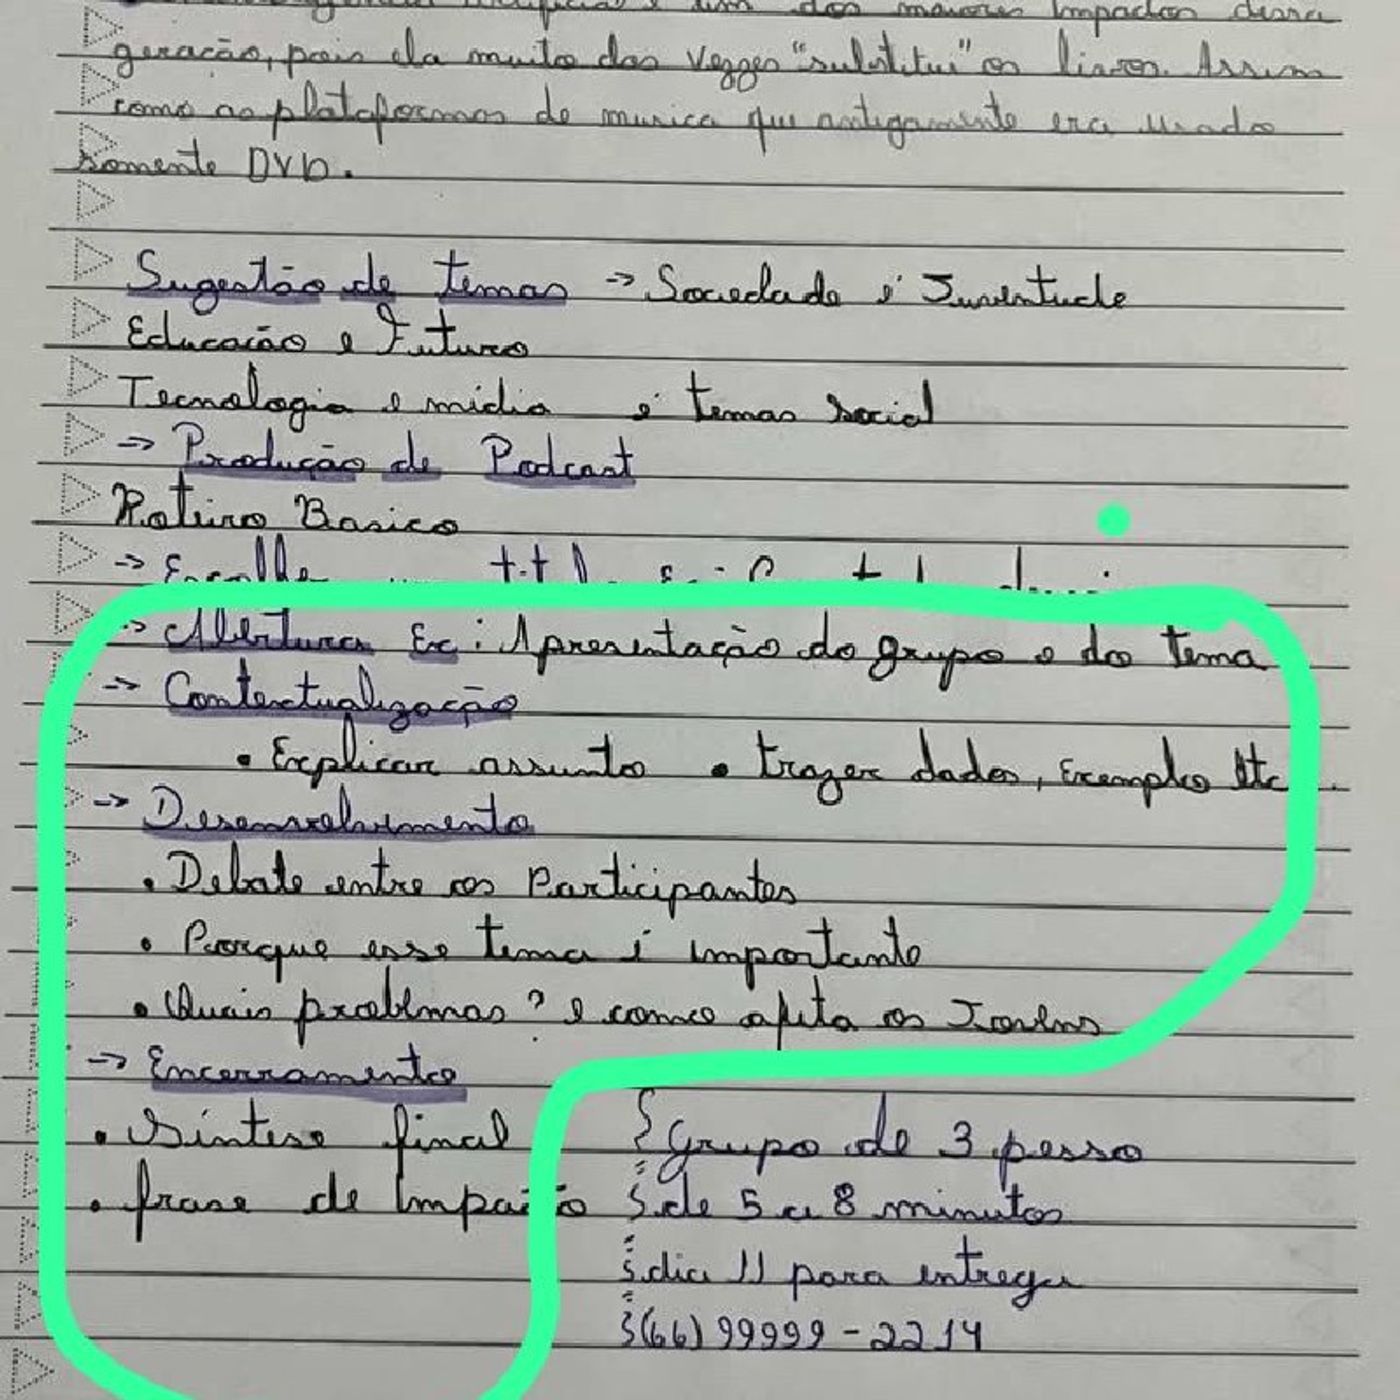 dos maiores impactos dessa
geração, pois ela muito das vezzes "substitui" os livros. Assim
como as plataformas de musica que antigamente era usado
somente DVD.
Sugestão de temas -> Sociedade e Juventude
Educação e Futuro
Tecnologia e midia e temas social
-> Produção de Podcast
Roteiro Basico
-> Escolhe
-> Abertura Ex: Apresentação do grupo e do tema
-> Contextualização
• Explicar assunto • trazer dados, Exemplo etc.
-> Desenvolvimento
• Debate entre os Participantes
• Porque esse tema é importante
• Quais problemas? e como afeta os Jovens
-> Encerramento
• Síntese final
• frase de Impacto
Grupo de 3 pesso
de 5 a 8 minutos
dia 11 para entregar
(66) 99999-2214